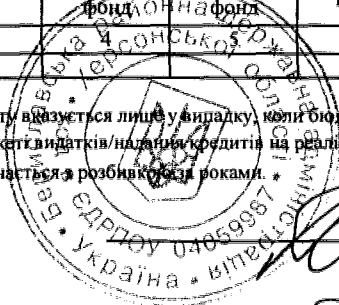 фонд фонд
4 5
ту вказується лише у випадку, коли бюд
кеті видатків/надання кредитів на реалі
нається з розбивкою за роками.
державна адміністрація
Херсонської області
ЄДРПОУ 04059987
* Україна *